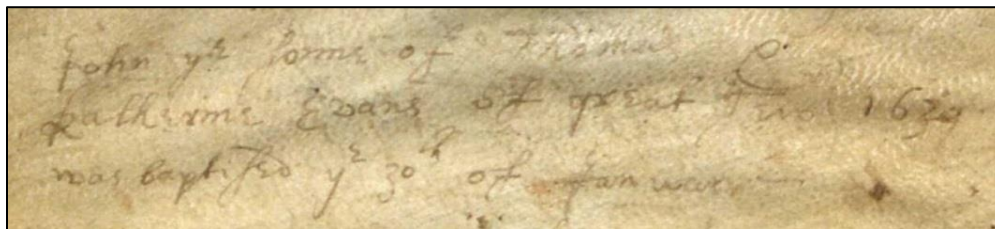 John ye sonne of Thomas &
Katherine Evans of great 1639
was baptised ye 30th of Januarie